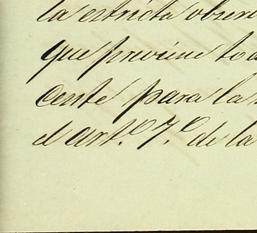 la estricta obser
que previene to
cente para la
el art.º 7.º de la